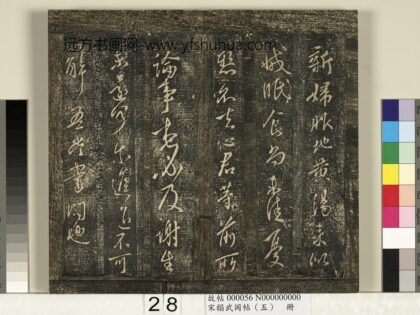 远方书画网-www.yfshuhua.com
新婦服地黃湯來似
減眠食尚未佳憂
懸不去心君等前所
論事想必及謝生
未還可尔進退不可
解吾當書問也
28
故帖 000056 N000000000
宋榻武岡帖（五） 冊